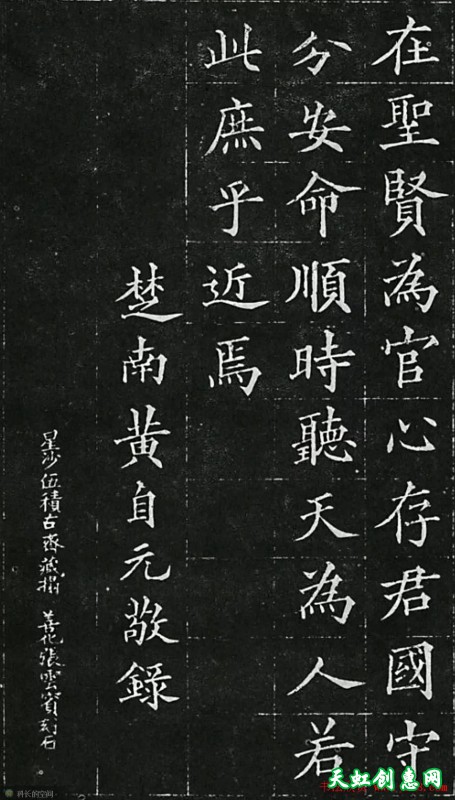 在聖賢為官心存君國守
分安命順時聽天為人若
此庶乎近焉
楚南黃自元敬錄
星沙伍積古齋藏搨 善化張雲賓刻石
天虹创惠网
科长的空间